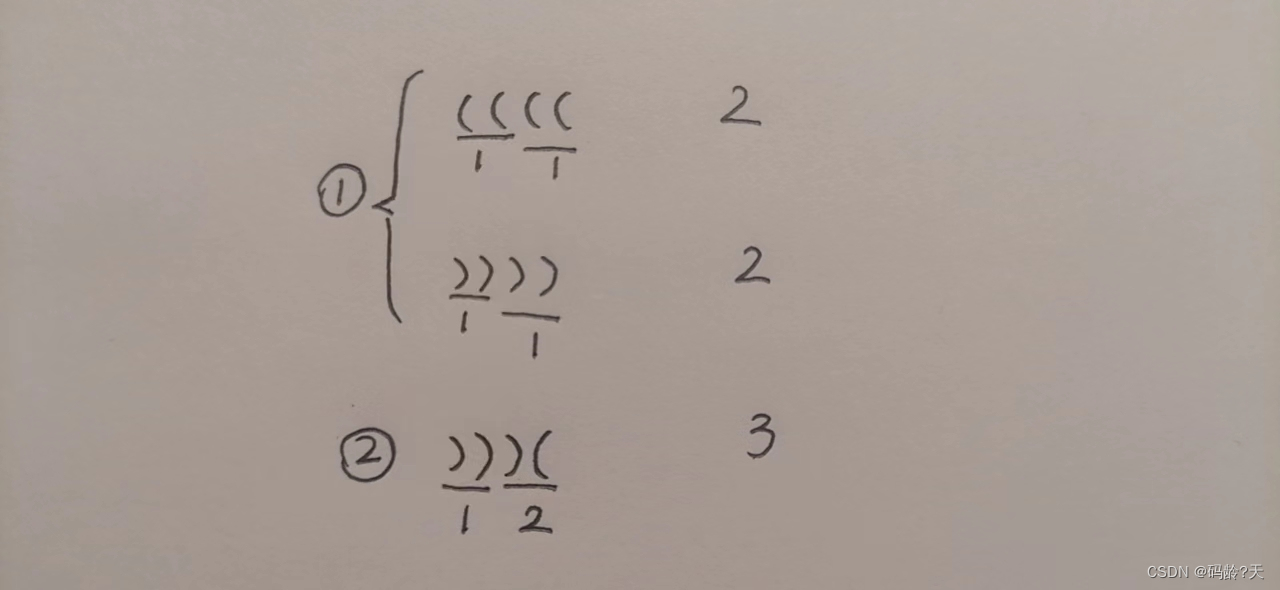 ① { ((((   2
1 1
))))   2
1 1
② )))(   3
1 2
CSDN @码龄?天